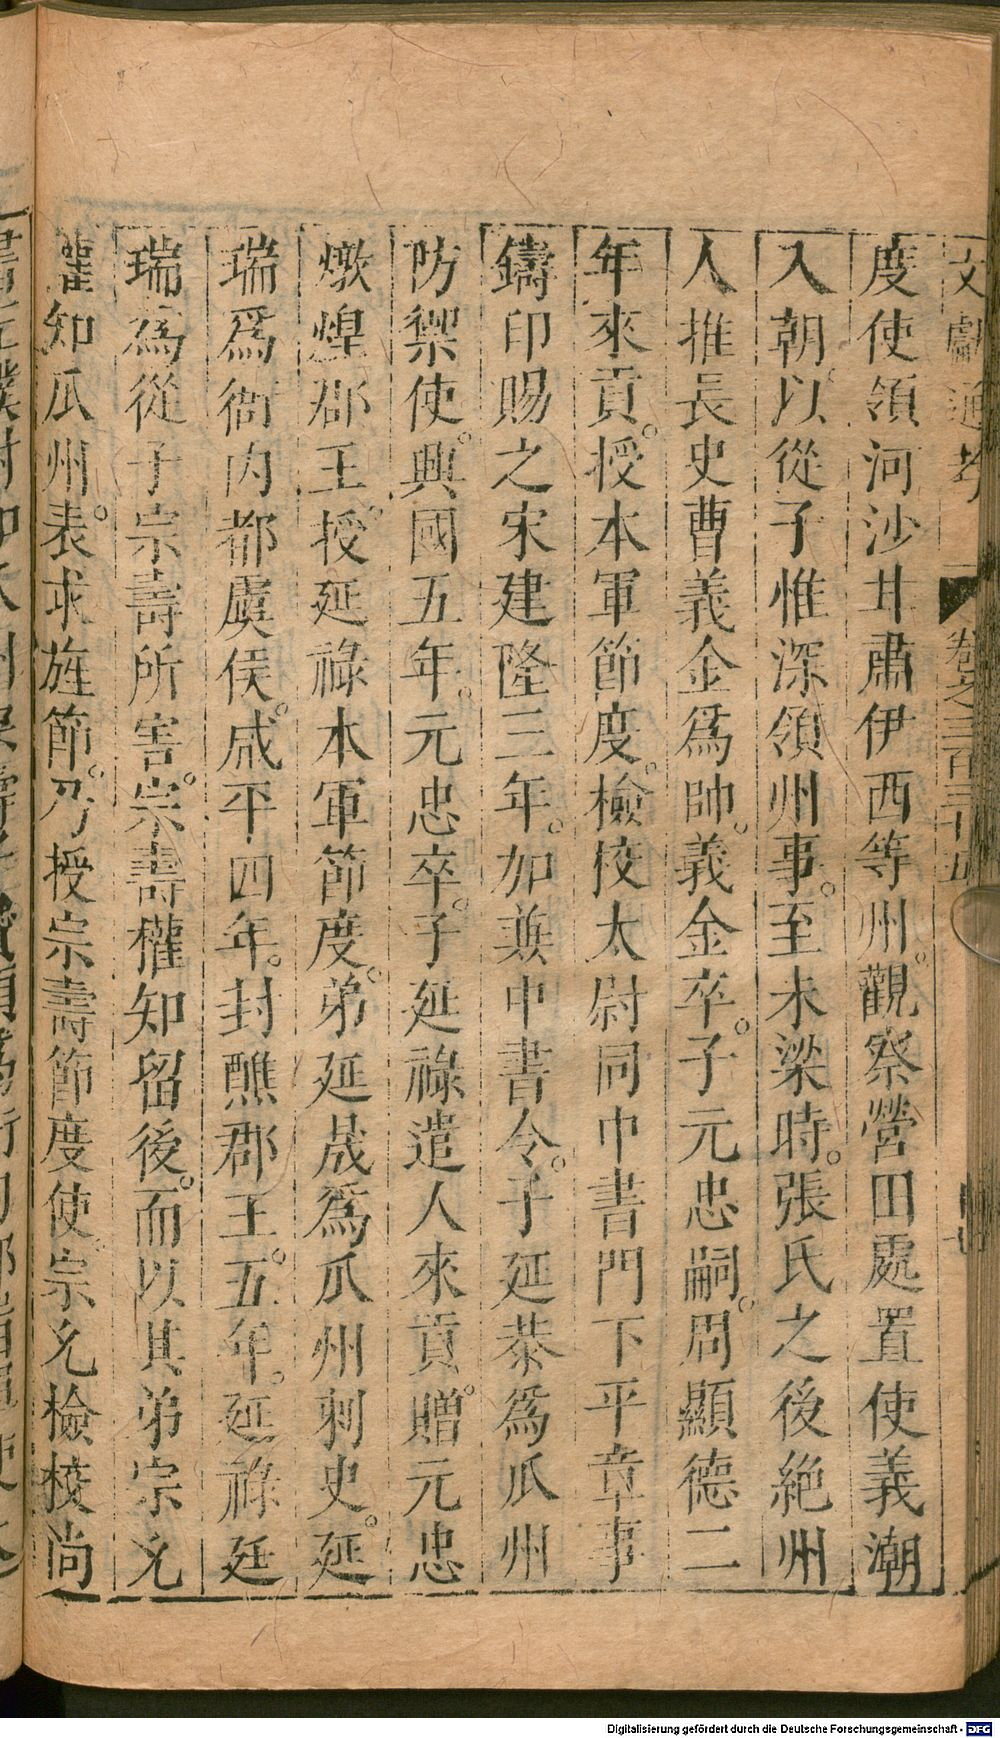 文獻通考 卷之三百三十五
度使領河沙甘肅伊西等州。觀察營田處置使義潮
入朝。以從子惟深領州事。至朱梁時。張氏之後絶州
人推長史曹義金爲帥。義金卒。子元忠嗣。周顯德二
年來貢。授本軍節度。檢校太尉同中書門下平章事
鑄印賜之宋建隆三年。加兼中書令。子延恭爲瓜州
防禦使。興國五年。元忠卒。子延祿遣人來貢。贈元忠
燉煌郡王。授延祿本軍節度。弟延晟爲瓜州刺史。延
瑞爲衙内都虞侯。咸平四年。封譙郡王。五年。延祿延
瑞爲從子宗壽所害。宗壽權知留後。而以其弟宗允
權知瓜州。表求旌節。乃授宗壽節度使。宗允檢校尚
Digitalisierung gefördert durch die Deutsche Forschungsgemeinschaft - DFG